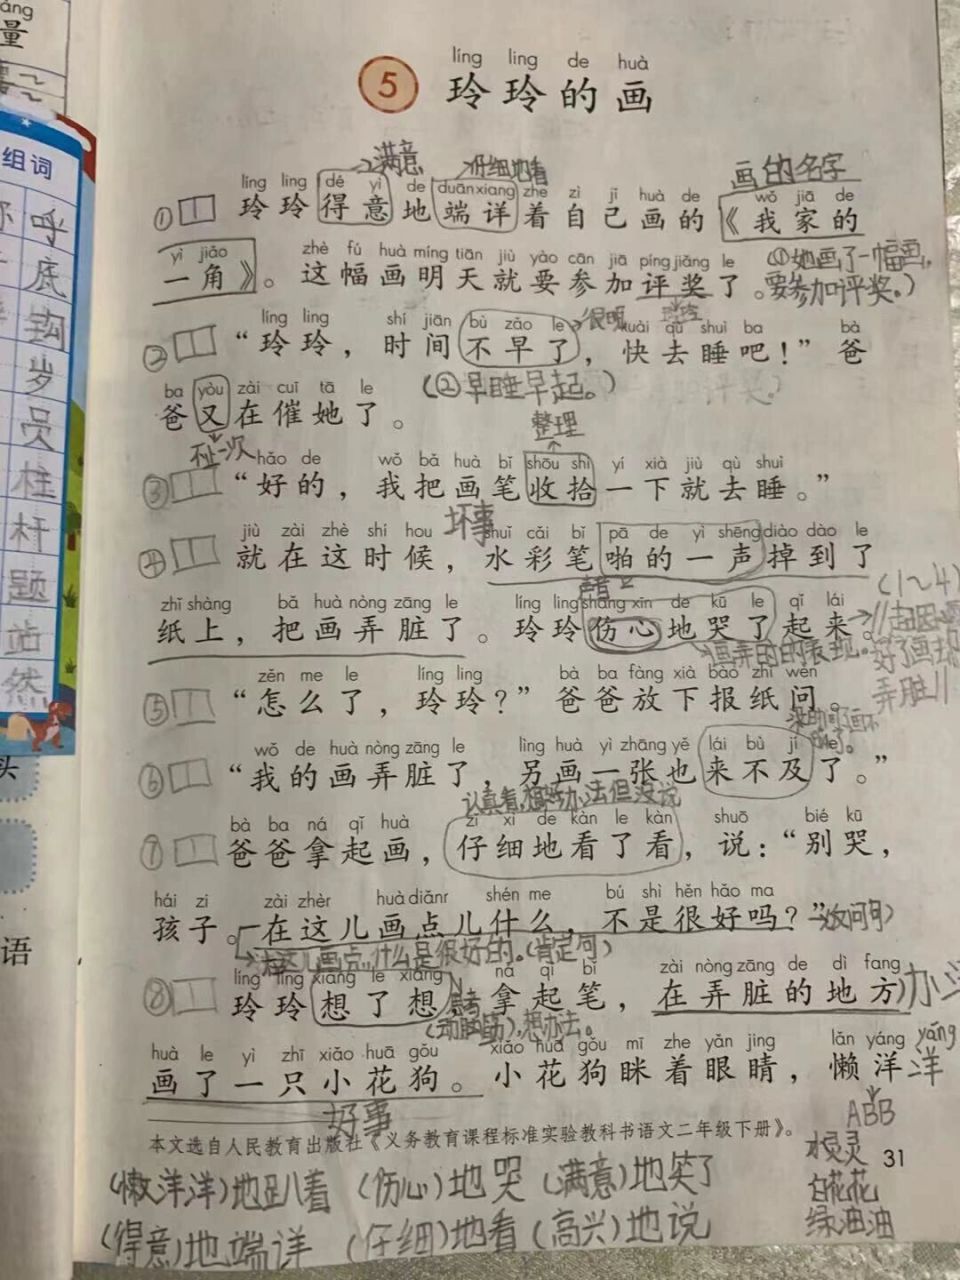 áng
量
组词
呼
底
钩
岁
员
柱
杆
题
站
然
头
语
líng ling de huà
5 玲玲的画
满意 仔细地看 画的名字
líng ling dé yì de duān xiang zhe zì jǐ huà de wǒ jiā de
① 玲玲得意地端详着自己画的《我家的
yì jiǎo zhè fú huà míng tiān jiù yào cān jiā píng jiǎng le
一角》。这幅画明天就要参加评奖了。
(①她画了一幅画,
要参加评奖。)
líng ling shí jiān bù zǎo le kuài qù shuì ba bà
② “玲玲，时间不早了，快去睡吧！”爸
很晚
ba yòu zài cuī tā le
爸又在催她了。
(②早睡早起。)
不止一次
整理
hǎo de wǒ bǎ huà bǐ shōu shi yí xià jiù qù shuì
③ “好的，我把画笔收拾一下就去睡。”
坏事
jiù zài zhè shí hou shuǐ cǎi bǐ pā de yì shēng diào dào le
④ 就在这时候，水彩笔啪的一声掉到了
zhǐ shàng bǎ huà nòng zāng le líng ling shāng xīn de kū le qǐ lái
纸上，把画弄脏了。玲玲伤心地哭了起来。
(1~4)
弄脏
zěn me le líng ling bà ba fàng xià bào zhǐ wèn
⑤ “怎么了，玲玲？”爸爸放下报纸问。
wǒ de huà nòng zāng le lìng huà yì zhāng yě lái bù jí le
⑥ “我的画弄脏了，另画一张也来不及了。”
认真看，想好办法但没说
bà ba ná qǐ huà zǐ xì de kàn le kàn shuō bié kū
⑦ 爸爸拿起画，仔细地看了看，说：“别哭，
hái zi zài zhèr huà diǎnr shén me bú shì hěn hǎo ma
孩子。在这儿画点儿什么，不是很好吗？”
反问句)
在这儿画点儿什么是很好的。(肯定句)
líng ling xiǎng le xiǎng ná qǐ bǐ zài nòng zāng de dì fang
⑧ 玲玲想了想，拿起笔，在弄脏的地方
思考
(动脑筋)，想办法。
huà le yì zhī xiǎo huā gǒu xiǎo huā gǒu mī zhe yǎn jing lǎn yáng yáng
画了一只小花狗。小花狗眯着眼睛，懒洋洋
好事
ABB
本文选自人民教育出版社《义务教育课程标准实验教科书语文二年级下册》。
水灵灵
31
白花花
绿油油
(懒洋洋)地趴着 (伤心)地哭 (满意)地笑了
(得意)地端详 (仔细)地看 (高兴)地说